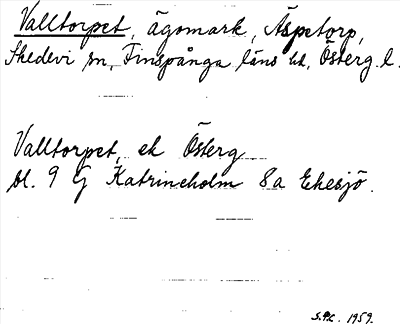 Valltorpet, ägomark, Äspetorp,
Skedevi sn, Finspånga läns hd, Österg. l.
Valltorpet, ek Österg
bl. 9 G Katrineholm 8a Ekesjö.
1959.